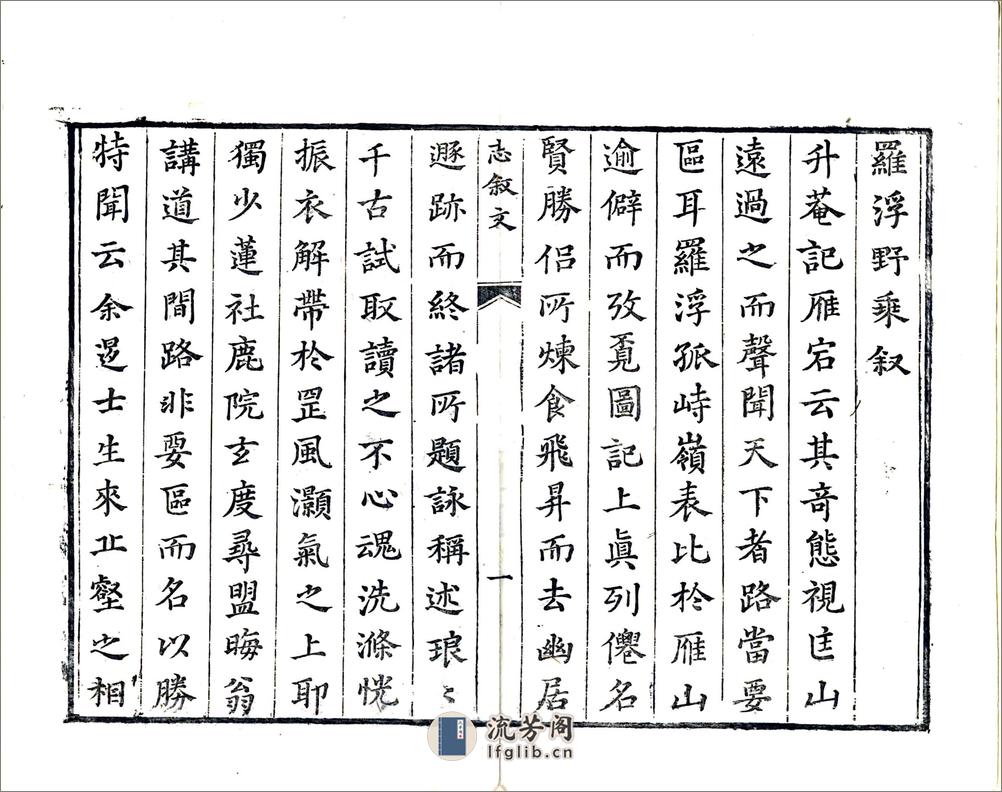 羅浮野乘叙
升菴記雁宕云其竒態視匡山
遠過之而聲聞天下者路當要
區耳羅浮孤峙嶺表比於雁山
逾僻而攷覔圖記上眞列僊名
賢勝侣所煉食飛昇而去幽居
志叙文
一
遯跡而終諸所題詠稱述琅〻
千古試取讀之不心魂洗滌恍
振衣解帶於罡風灝氣之上耶
獨少蓮社鹿院玄度尋盟晦翁
講道其間路非要區而名以勝
特聞云余逆士生來丘壑之相
流芳阁
lfglib.cn